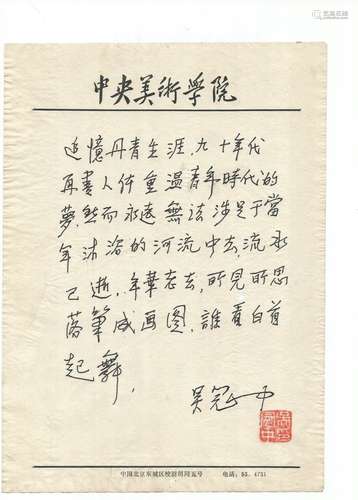 中央美術学院
追憶丹青生涯,九十年代
再畫人体重温青年時代的
夢,然而永遠無法涉足于當
年沐浴的河流中去,流水
已逝,年華老去,所見所思
落筆成画图,誰看白首
起舞,
吴冠中
中国北京东城区校尉胡同五号 电话:55.4731